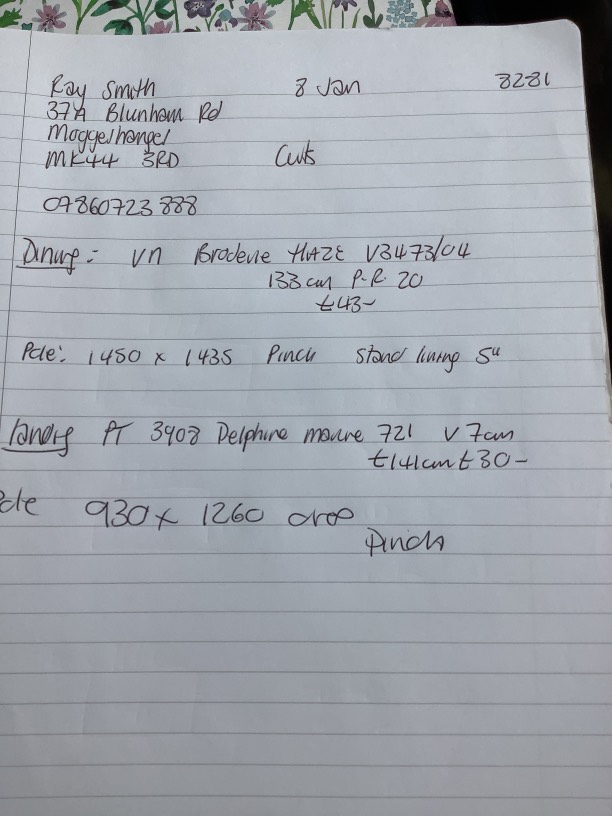 Ray Smith 8 Jan 8281
37A Blunham Rd
Moggerhanger
MK44 3RD Cuts
07860723888
Dining:- VN Broderie HAZE V3473/04
133 cm P-R 20
£43-
Pole: 1450 x 1435 Pinch Stand lining 5"
Landing PT 3908 Delphine mauve 721 V 7cm
£141cm £30-
Pole 930 x 1260 drop
Pinch